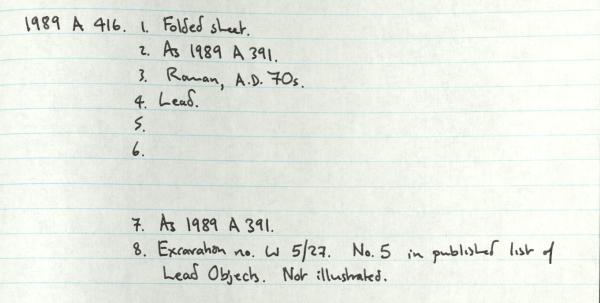 1989 A 416. 1. Folded sheet.
2. As 1989 A 391.
3. Roman, A.D. 70s.
4. Lead.
5.
6.
7. As 1989 A 391.
8. Excavation no. W 5/27. No. 5 in published list of
Lead Objects. Not illustrated.